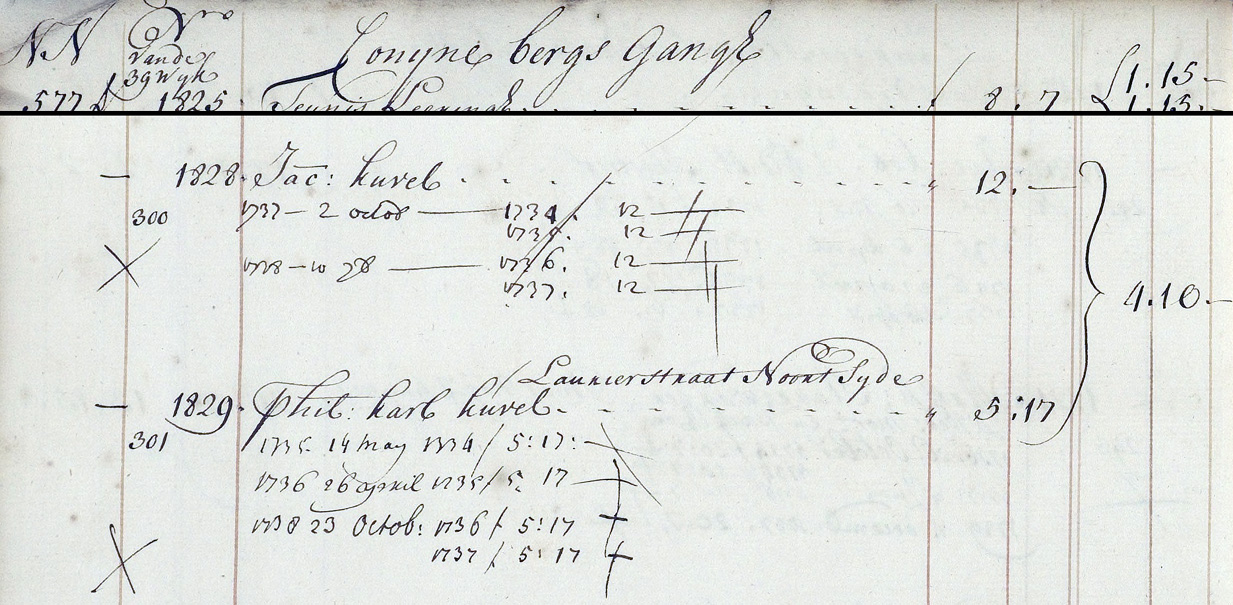 NN Nro Conyne bergs Gangh
vande
39 Wyk
577 1825. Teunis . . . . . . / 8 : 7 1. 15 -
1. 15. -
— 1828. Jac: hurel . . . . . . . " 12. —
300 1737 — 2 octob —— 1734. 12 ——
1735. 12 ——
1738 — 10 —— 1736. 12 ——
1737. 12 ——
4. 10. —
/ Laurierstraat Noort Syde
— 1829. Phil: karl hurel . . . . . . . " 5 : 17
301 1735. 14 may 1734 / 5 : 17 : —
1736 26 april 1735 / 5. 17 —
1738 23 Octob: 1736 / 5 : 17
1737 / 5 : 17